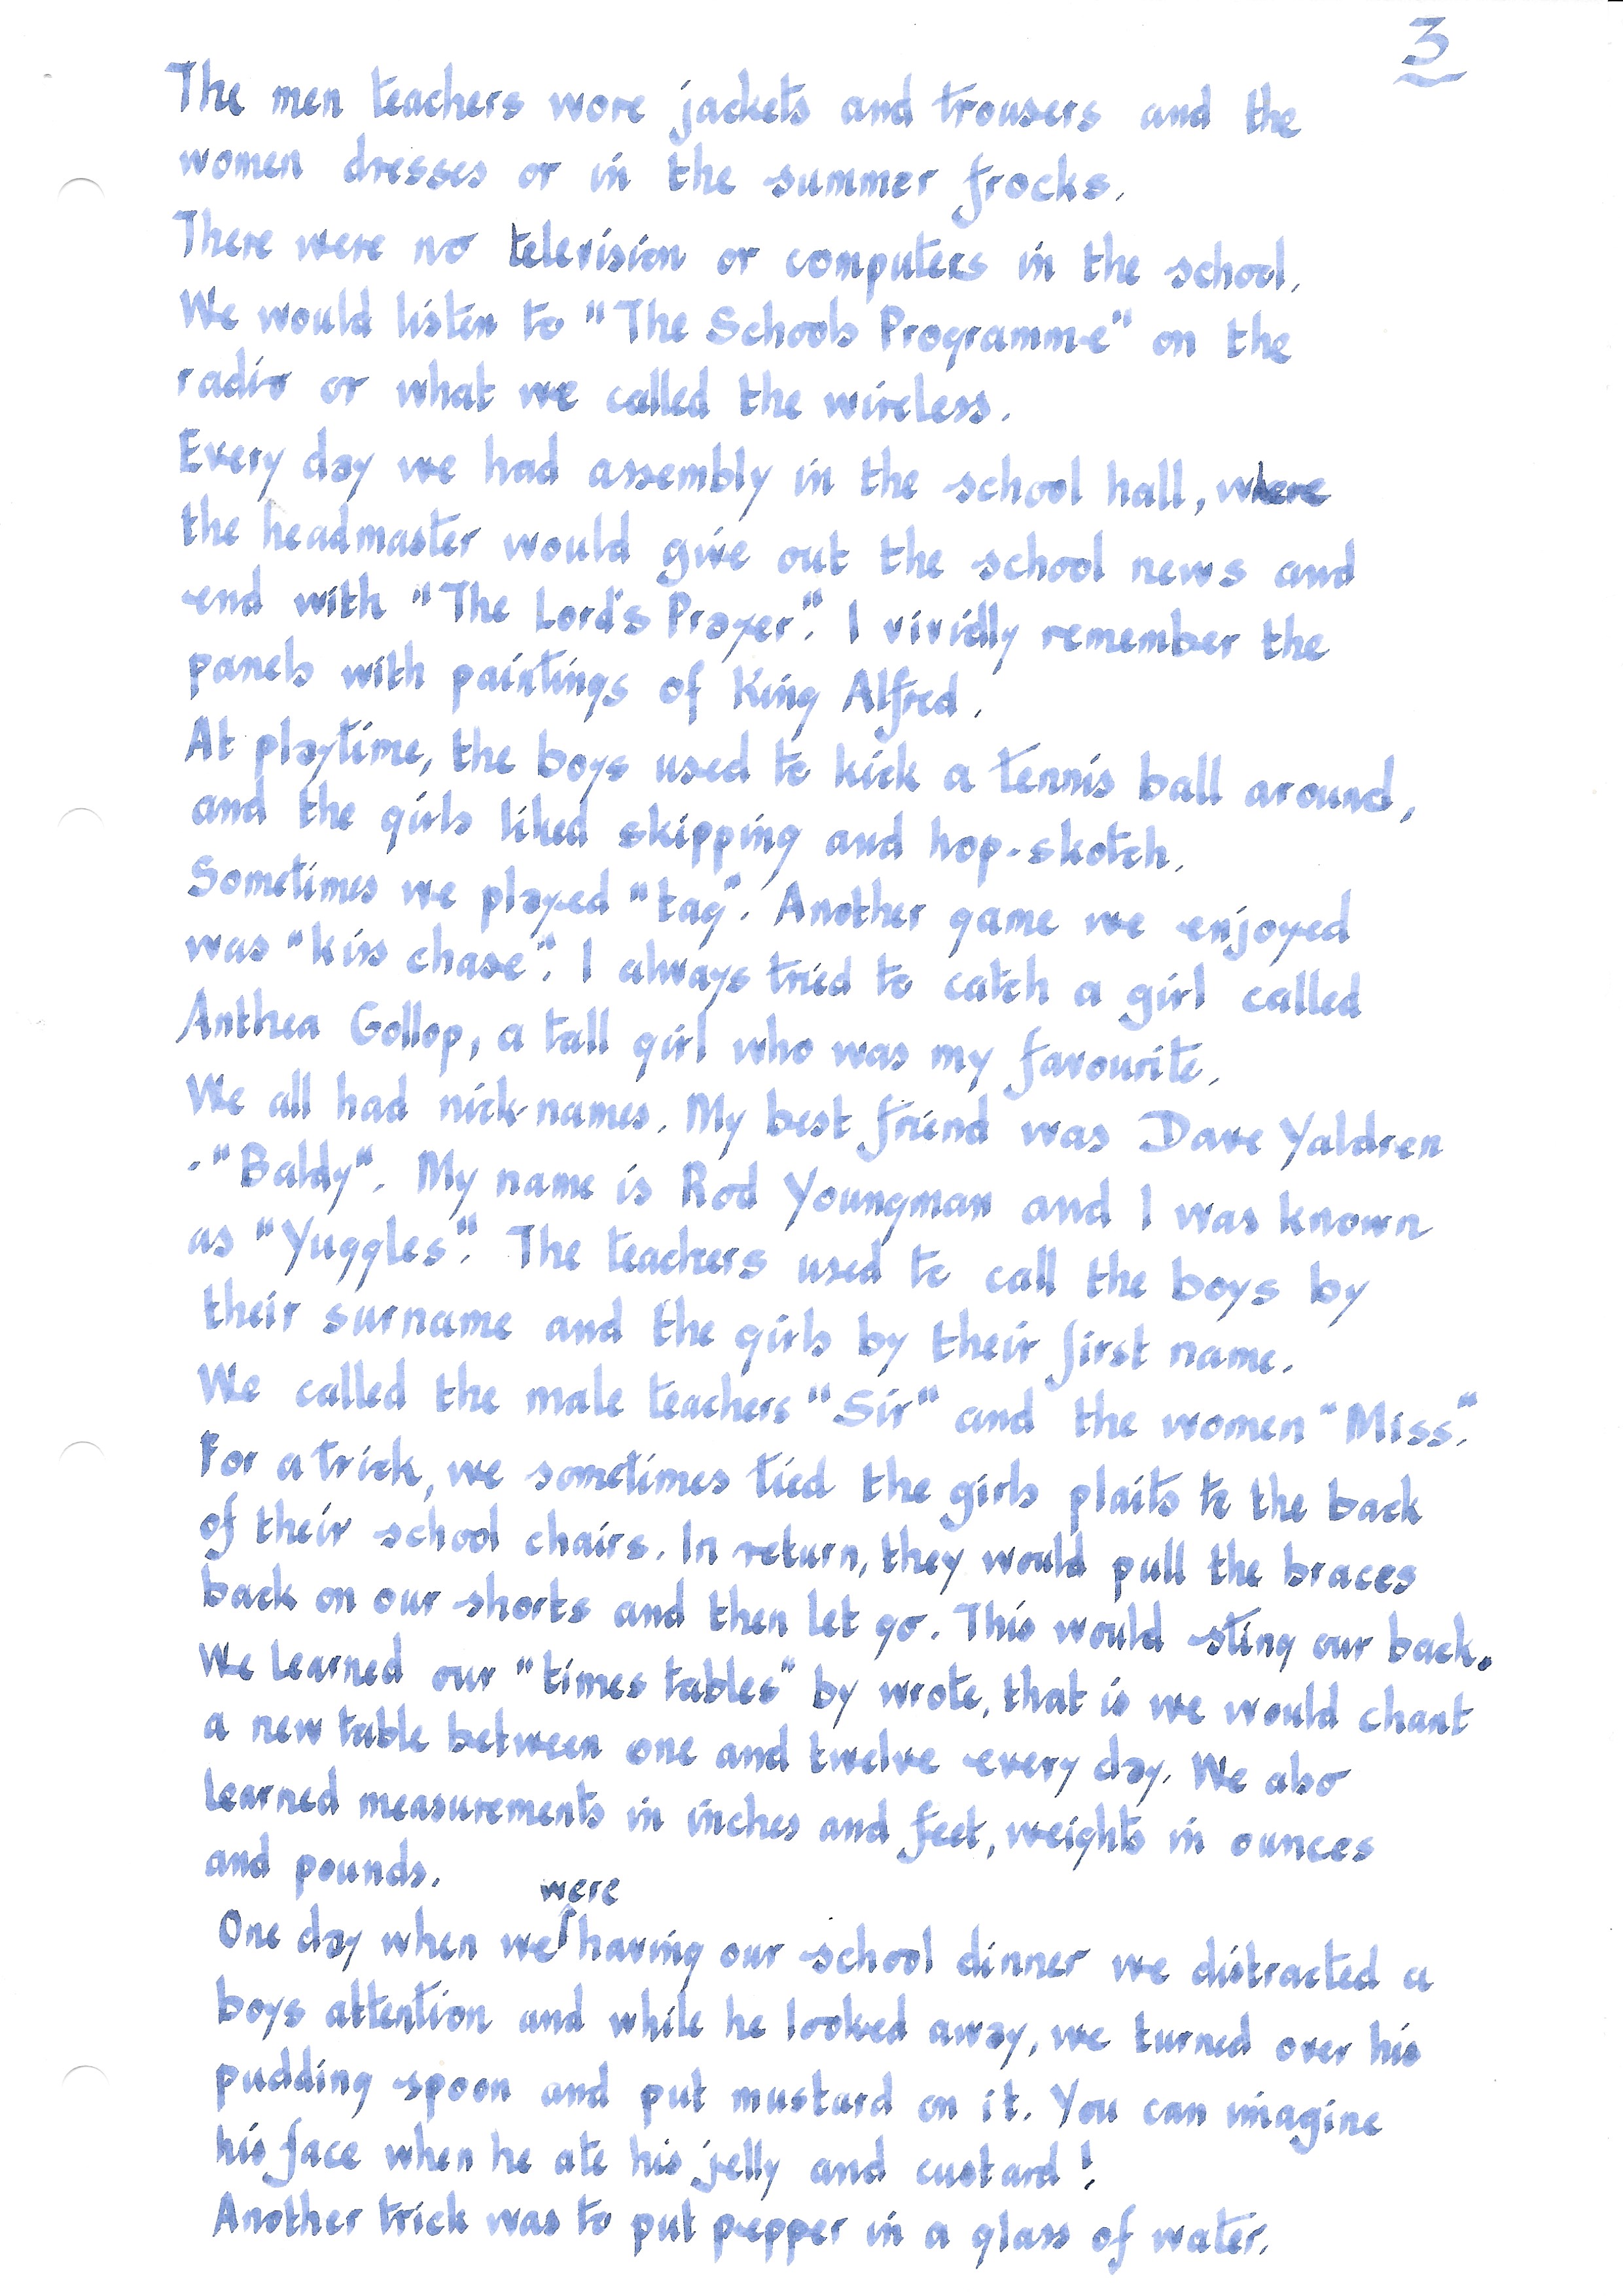 3
The men teachers wore jackets and trousers and the
women dresses or in the summer frocks.
There were no television or computers in the school.
We would listen to "The Schools Programme" on the
radio or what we called the wireless.
Every day we had assembly in the school hall, where
the headmaster would give out the school news and
end with "The Lord's Prayer". I vividly remember the
panels with paintings of King Alfred.
At playtime, the boys used to kick a tennis ball around,
and the girls liked skipping and hop-skotch.
Sometimes we played "tag". Another game we enjoyed
was "kiss chase". I always tried to catch a girl called
Anthea Gollop, a tall girl who was my favourite.
We all had nick-names. My best friend was Dave Yaldren
-"Baldy". My name is Rod Youngman and I was known
as "Yuggles". The teachers used to call the boys by
their surname and the girls by their first name.
We called the male teachers "Sir" and the women "Miss."
For a trick, we sometimes tied the girls plaits to the back
of their school chairs. In return, they would pull the braces
back on our shorts and then let go. This would sting our back.
We learned our "times tables" by wrote, that is we would chant
a new table between one and twelve every day. We also
learned measurements in inches and feet, weights in ounces
and pounds.
One day when we were having our school dinner we distracted a
boys attention and while he looked away, we turned over his
pudding spoon and put mustard on it. You can imagine
his face when he ate his jelly and custard!
Another trick was to put pepper in a glass of water.